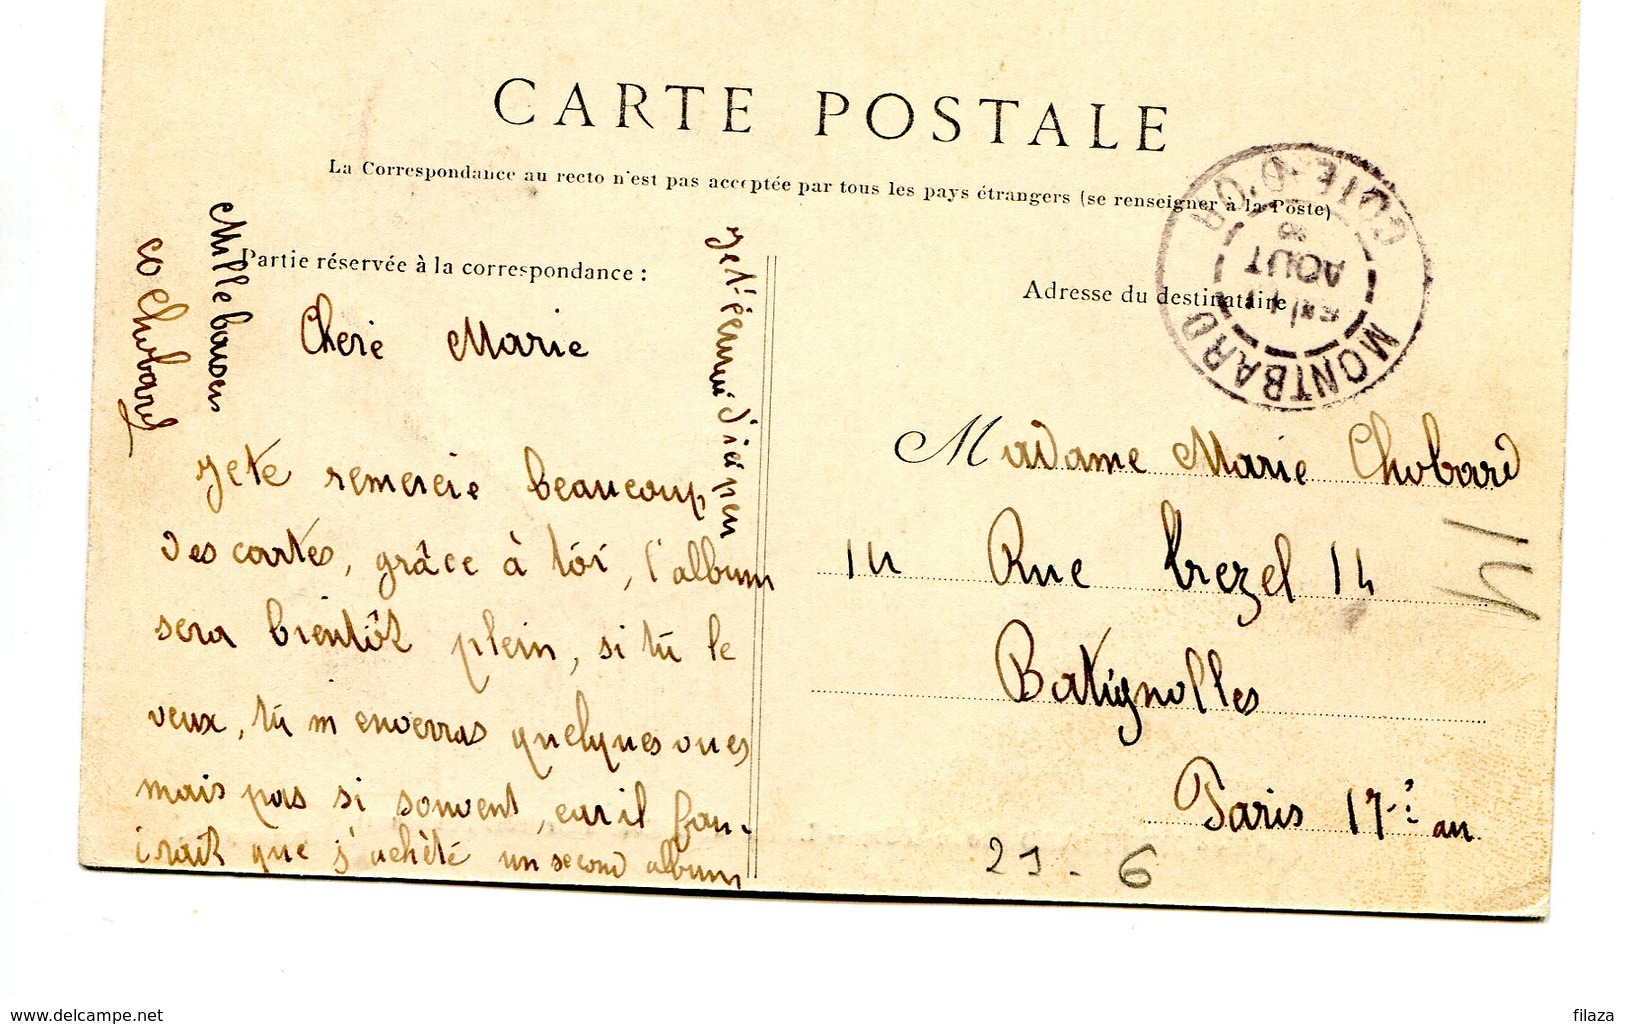 CARTE POSTALE
La Correspondance au recto n'est pas acceptée par tous les pays étrangers (se renseigner à la Poste)
Partie réservée à la correspondance :
Adresse du destinataire
MONTBARD
CÔTE-D'OR
AOUT
Cherie Marie
Je te remercie beaucoup
des cartes, grâce à tôi, l'album
sera bientôt plein, si tu le
veux, tu m'enverras quelques vues
mais pas si souvent, car il fau-
drait que j'achète un second album
Je t'écrirai d'ici peu
Mille baisers
Chobard
Madame Marie Chobard
14 Rue Brezel 14
Batignolles
Paris 17e au
14
21 - 6
www.delcampe.net
filaza